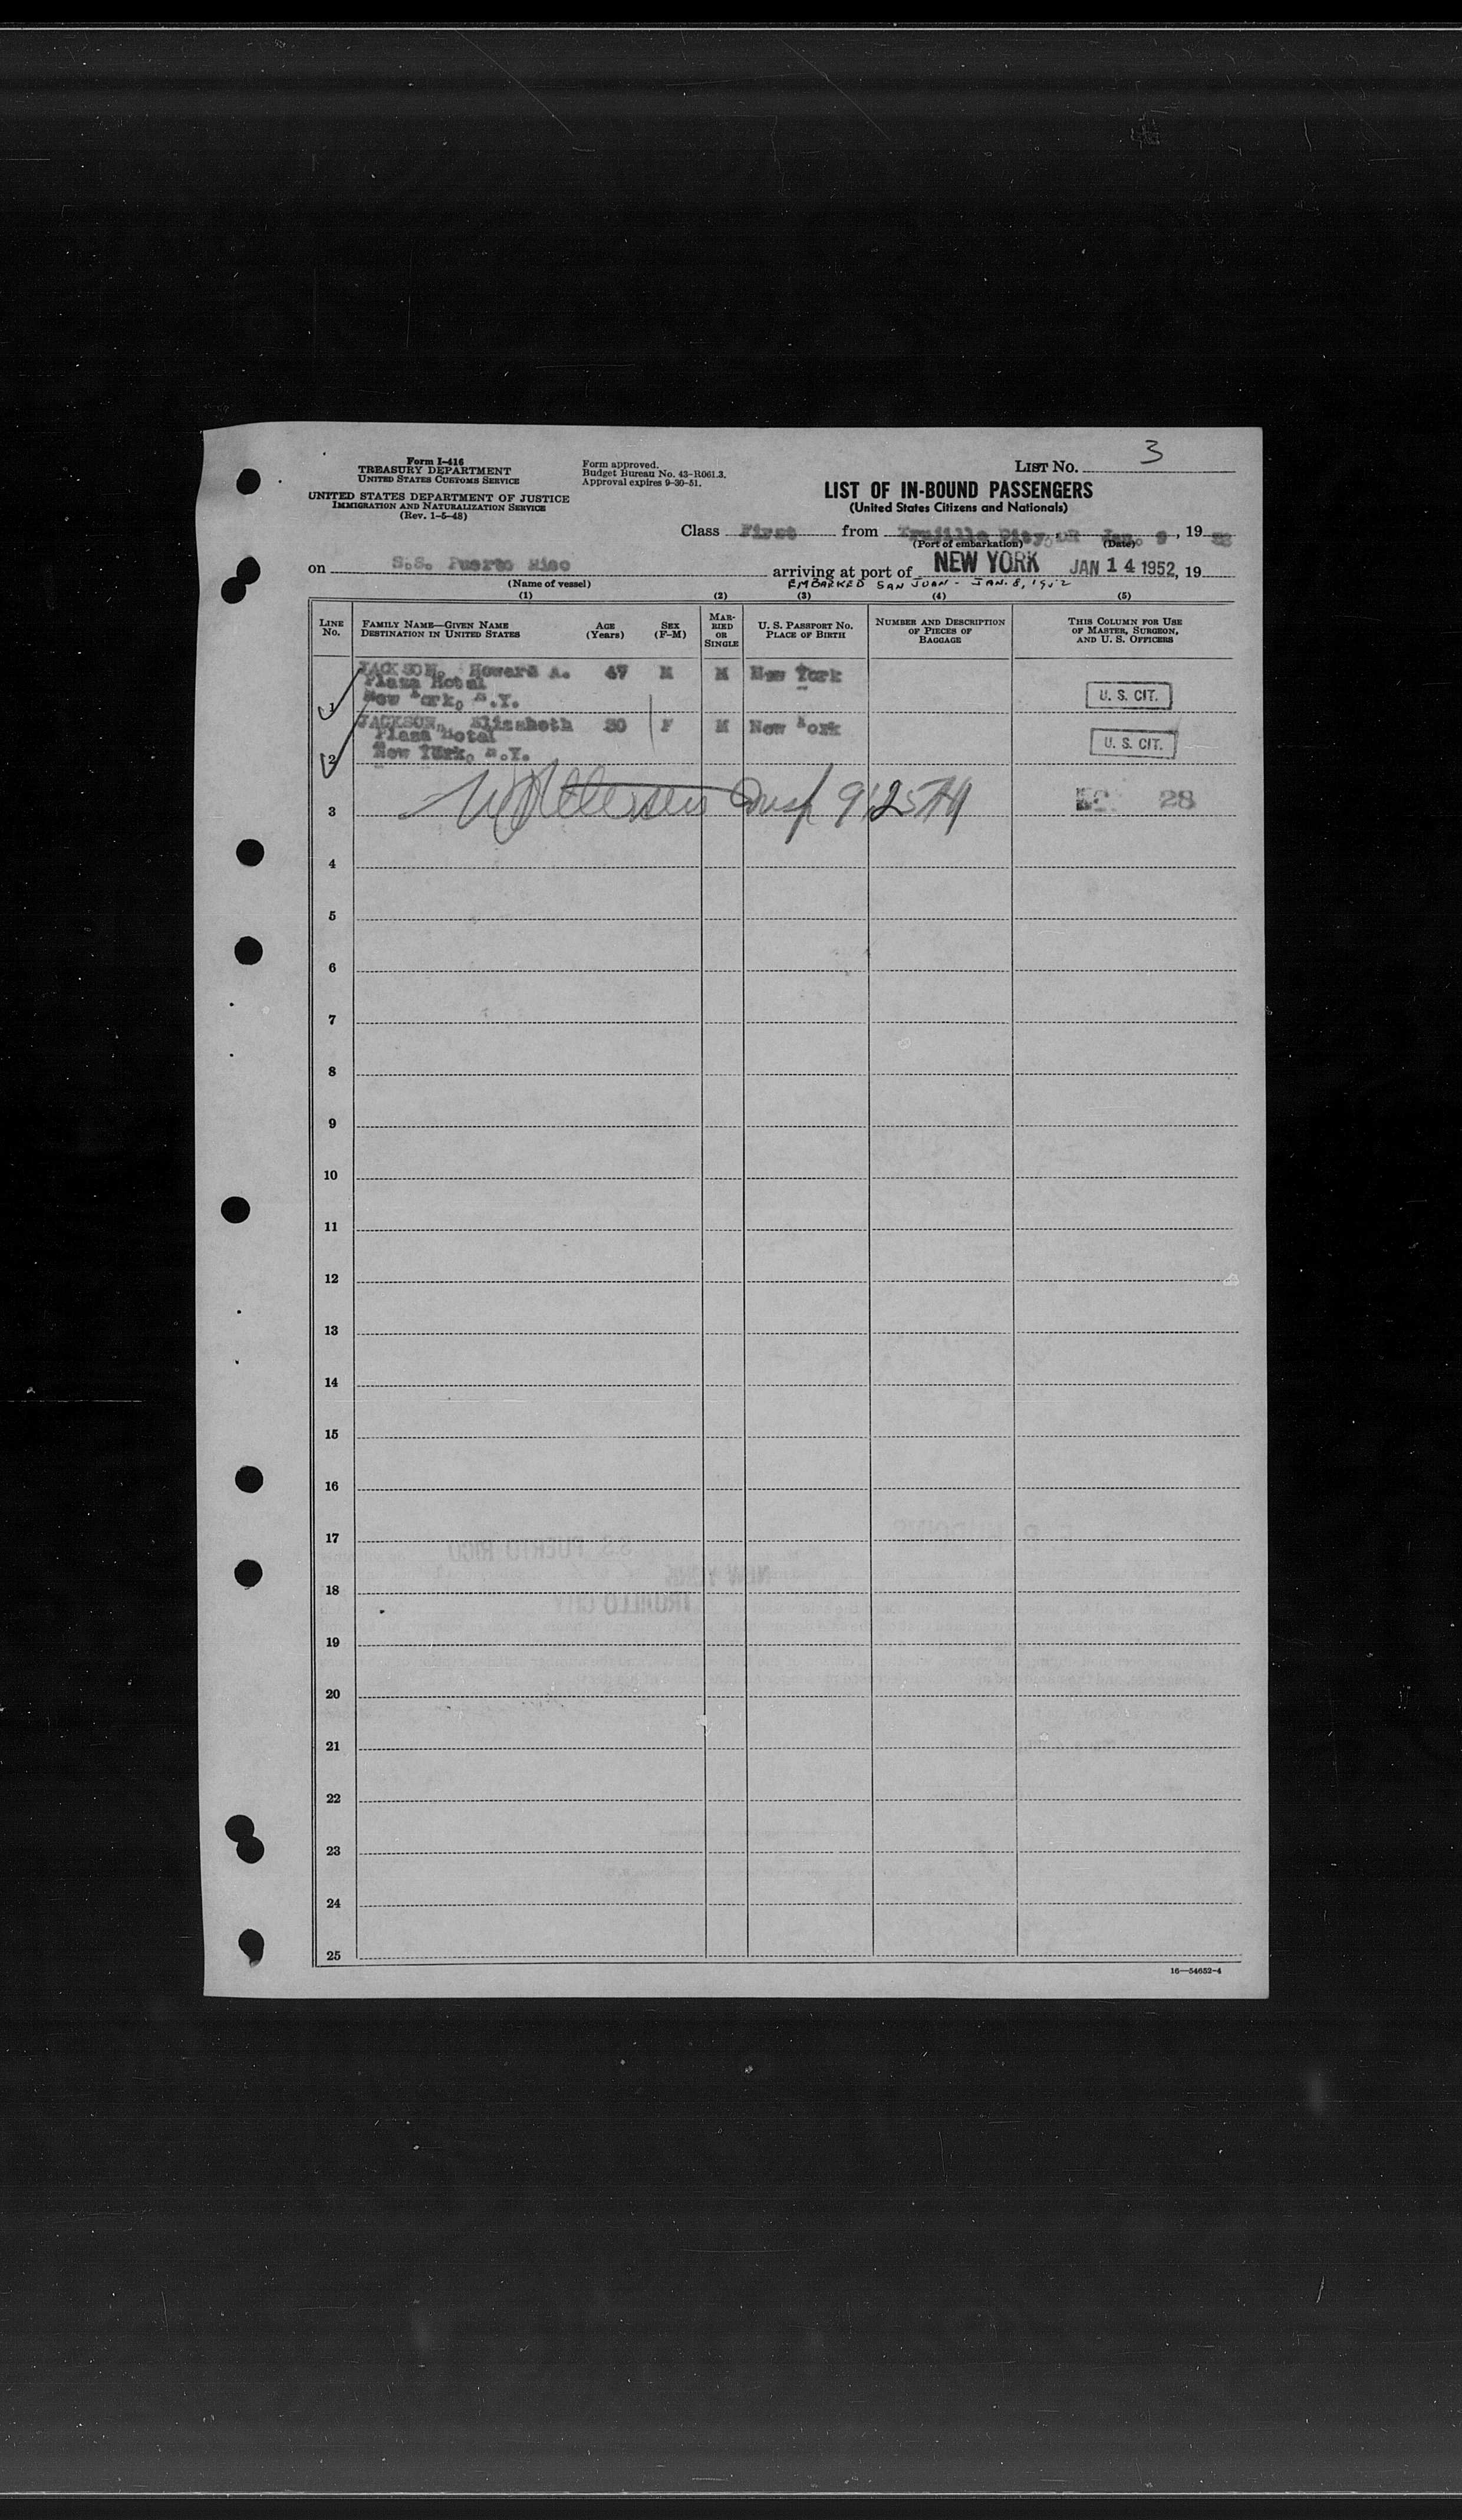 Form I-416
TREASURY DEPARTMENT
UNITED STATES CUSTOMS SERVICE
UNITED STATES DEPARTMENT OF JUSTICE
IMMIGRATION AND NATURALIZATION SERVICE
(Rev. 1-5-48)
Form approved.
Budget Bureau No. 43-R061.3.
Approval expires 9-30-51.
LIST No. 3
LIST OF IN-BOUND PASSENGERS
(United States Citizens and Nationals)
Class First from Trujillo City, DR Jan. 9, 19 52
(Port of embarkation) (Date)
on S.S. Puerto Rico arriving at port of NEW YORK JAN 14 1952, 19
(Name of vessel) EMBARKED SAN JUAN - JAN. 8, 1952
(1) (2) (3) (4) (5)
LINE No. FAMILY NAME—GIVEN NAME DESTINATION IN UNITED STATES AGE (Years) SEX (F-M) MARRIED OR SINGLE U. S. PASSPORT No. PLACE OF BIRTH NUMBER AND DESCRIPTION OF PIECES OF BAGGAGE THIS COLUMN FOR USE OF MASTER, SURGEON, AND U. S. OFFICERS
JACKSON, Howard A. 47 M M New York
Plaza Hotel
1 New York, N.Y. U. S. CIT.
JACKSON, Elizabeth 30 F M New York
Plaza Hotel
2 New York, N.Y. U. S. CIT.
3 Insp 28
4
5
6
7
8
9
10
11
12
13
14
15
16
17
18
19
20
21
22
23
24
25
16—54652-4